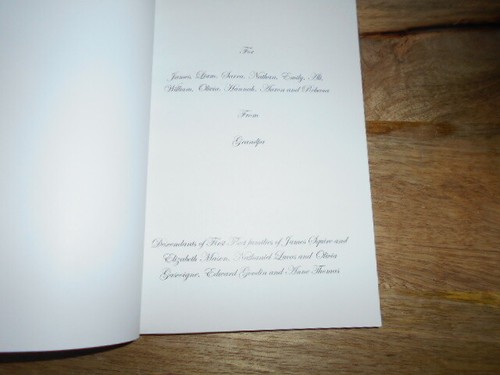 For
James, Laura, Sarra, Nathan, Emily, Ali
William, Olivia, Hannah, Aaron and Rebecca
From
Grandpa
Descendants of First Fleet families of James Squire and
Elizabeth Mason, Nathaniel Lucas and Olivia
Gascoigne, Edward Goodin and Anne Thomas